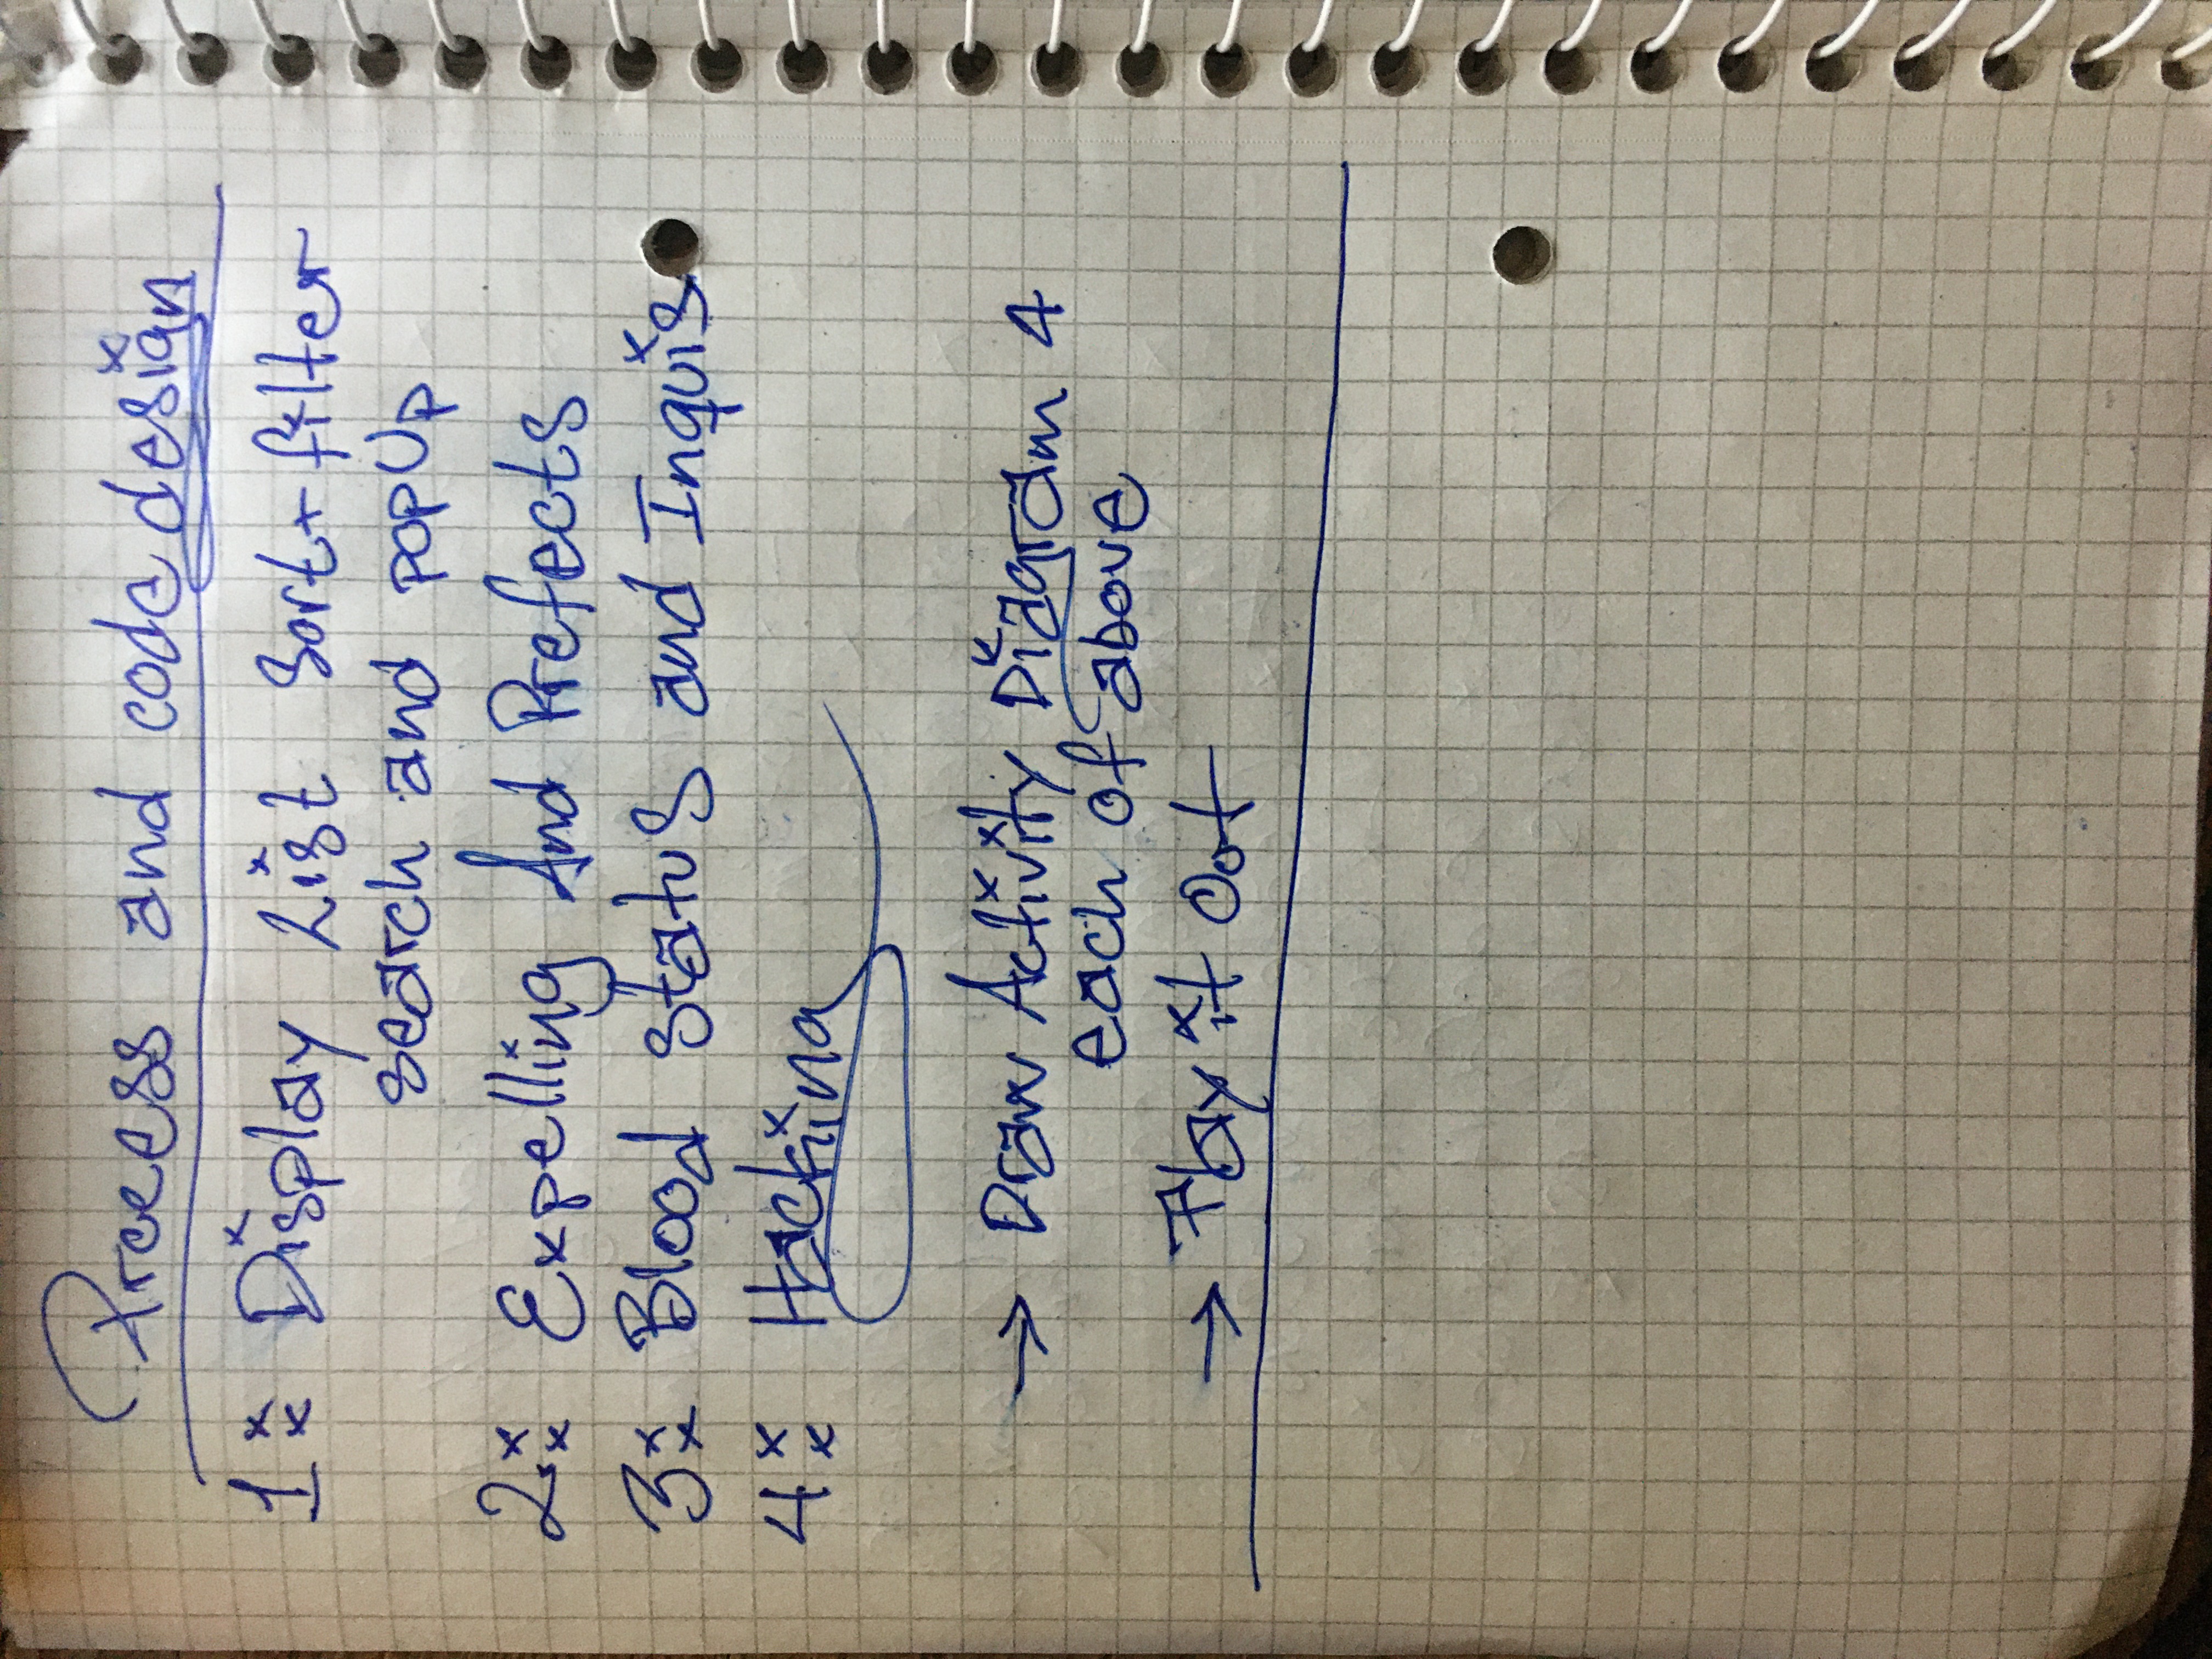 Process and code design
1: Display List Sort + filter
search and popUp
2.: Expelling And Prefects
3: Blood status and Inquis
4: Hacking
→ Draw Activity Diagram 4
each of above
→ Play it Out